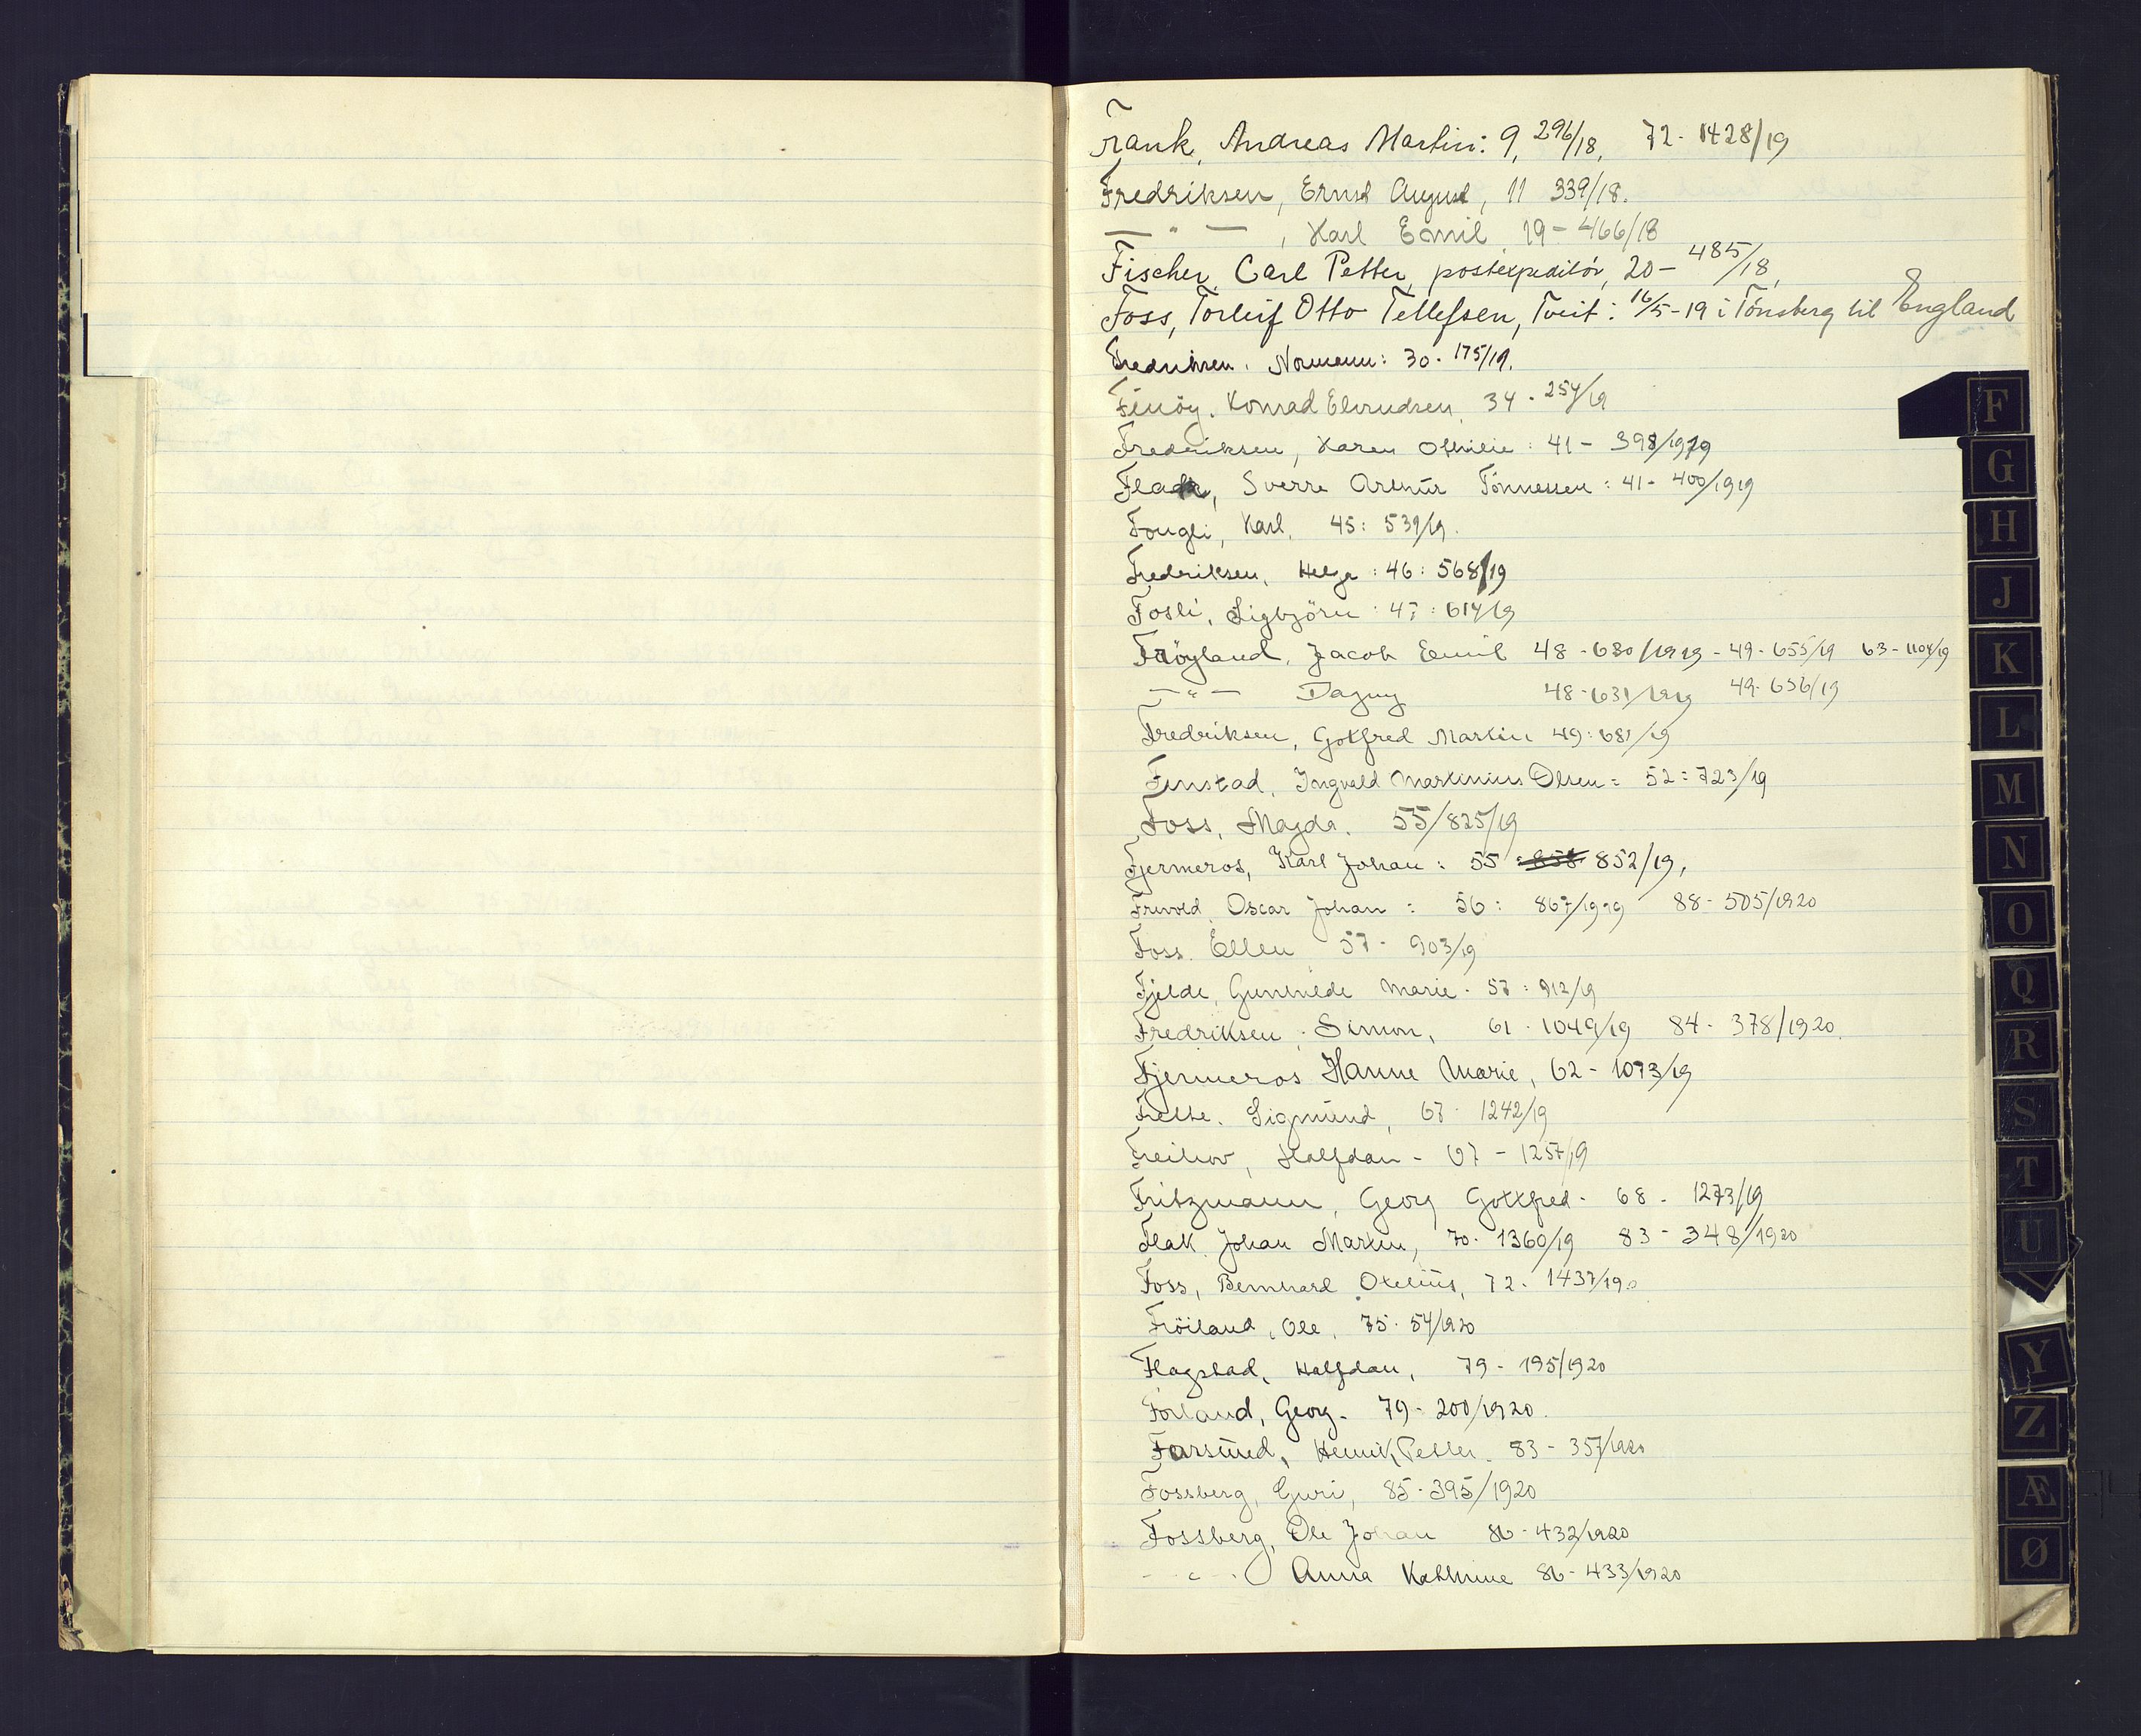 Frank, Andreas Martin: 9, 296/18, 72- 1428/19
Fredriksen, Ernst August, 11 339/18.
— " — , Karl Emil, 19 - 466/18
Fischer, Carl Petter, postexpeditör, 20 - 485/18,
Foss, Torleif Otto Tellefsen, Tveit: 16/5-19 i Tönsberg til England
Fredriksen, Normann: 30- 175/19.
Konrad 34 - 254/19
Fredriksen, Karen Othilie: 41 - 398/1919
Sverre Arthur Tönnessen: 41- 400/1919
Fougli, Karl, 45: 539/19.
Fredriksen, Helge: 46: 568/19
Fosli, Sigbjörn: 47: 614/19
Fröyland, Jacob Emil 48 - 630/1919 - 49 - 655/19 63 - 1104/19
— " — Dagny 48 - 631/1919 49 - 656/19
Fredriksen, Gotfred Martin 49: 681/19
Finstad, Ingvald Martinius Olsen: 52: 723/19
Foss, Magda. 55/825/19
Fjermeros, Karl Johan: 55 : 858 852/19,
Frivold, Oscar Johan: 56: 867/1919 88 - 505/1920
Foss. Ellen 57 - 903/19
Fjelde, Gunhilde Marie. 57: 912/19
Fredriksen, Simon, 61 - 1049/19 84 - 378/1920.
Fjermeros Hanne Marie, 62 - 1073/19
Sigmund, 67 - 1242/19
Halfdan - 67 - 1257/19
Fritzmann, Georg Gottfred - 68 - 1273/19
Flak, Johan Martin, 70 - 1360/19 83 - 348/1920
Foss, Bernhard Otelius, 72 - 1437/19
Fröiland, Ole, 75 - 54/1920
Flagstad, Halfdan, 79 - 195/1920
Förland, Georg - 79 - 200/1920.
Farsund, Henrik Petter. 83 - 357/1920
Fossberg, Guri, 85 - 395/1920
Fossberg, Ole Johan 86 - 432/1920
- " - Anna Kathrine 86 - 433/1920
F
G
H
J
K
L
M
N
O
Q
R
S
T
U
Y
Z
Æ
Ø